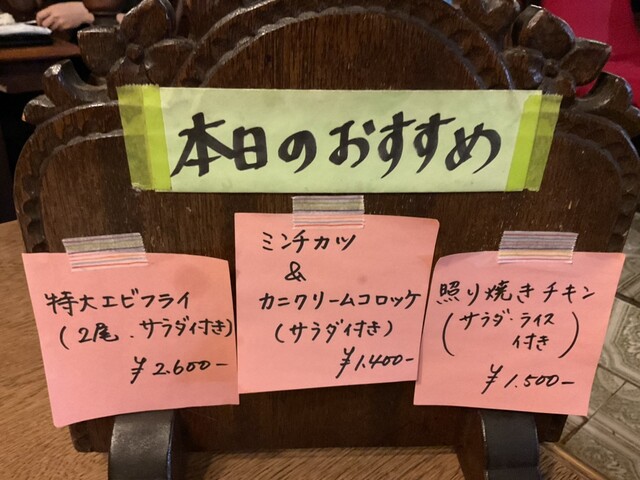 本日のおすすめ
特大エビフライ
(2尾.サラダ付き)
¥2.600-
ミンチカツ
&
カニクリームコロッケ
(サラダ付き)
¥1.400-
照り焼きチキン
(サラダ・ライス
付き)
¥1.500-